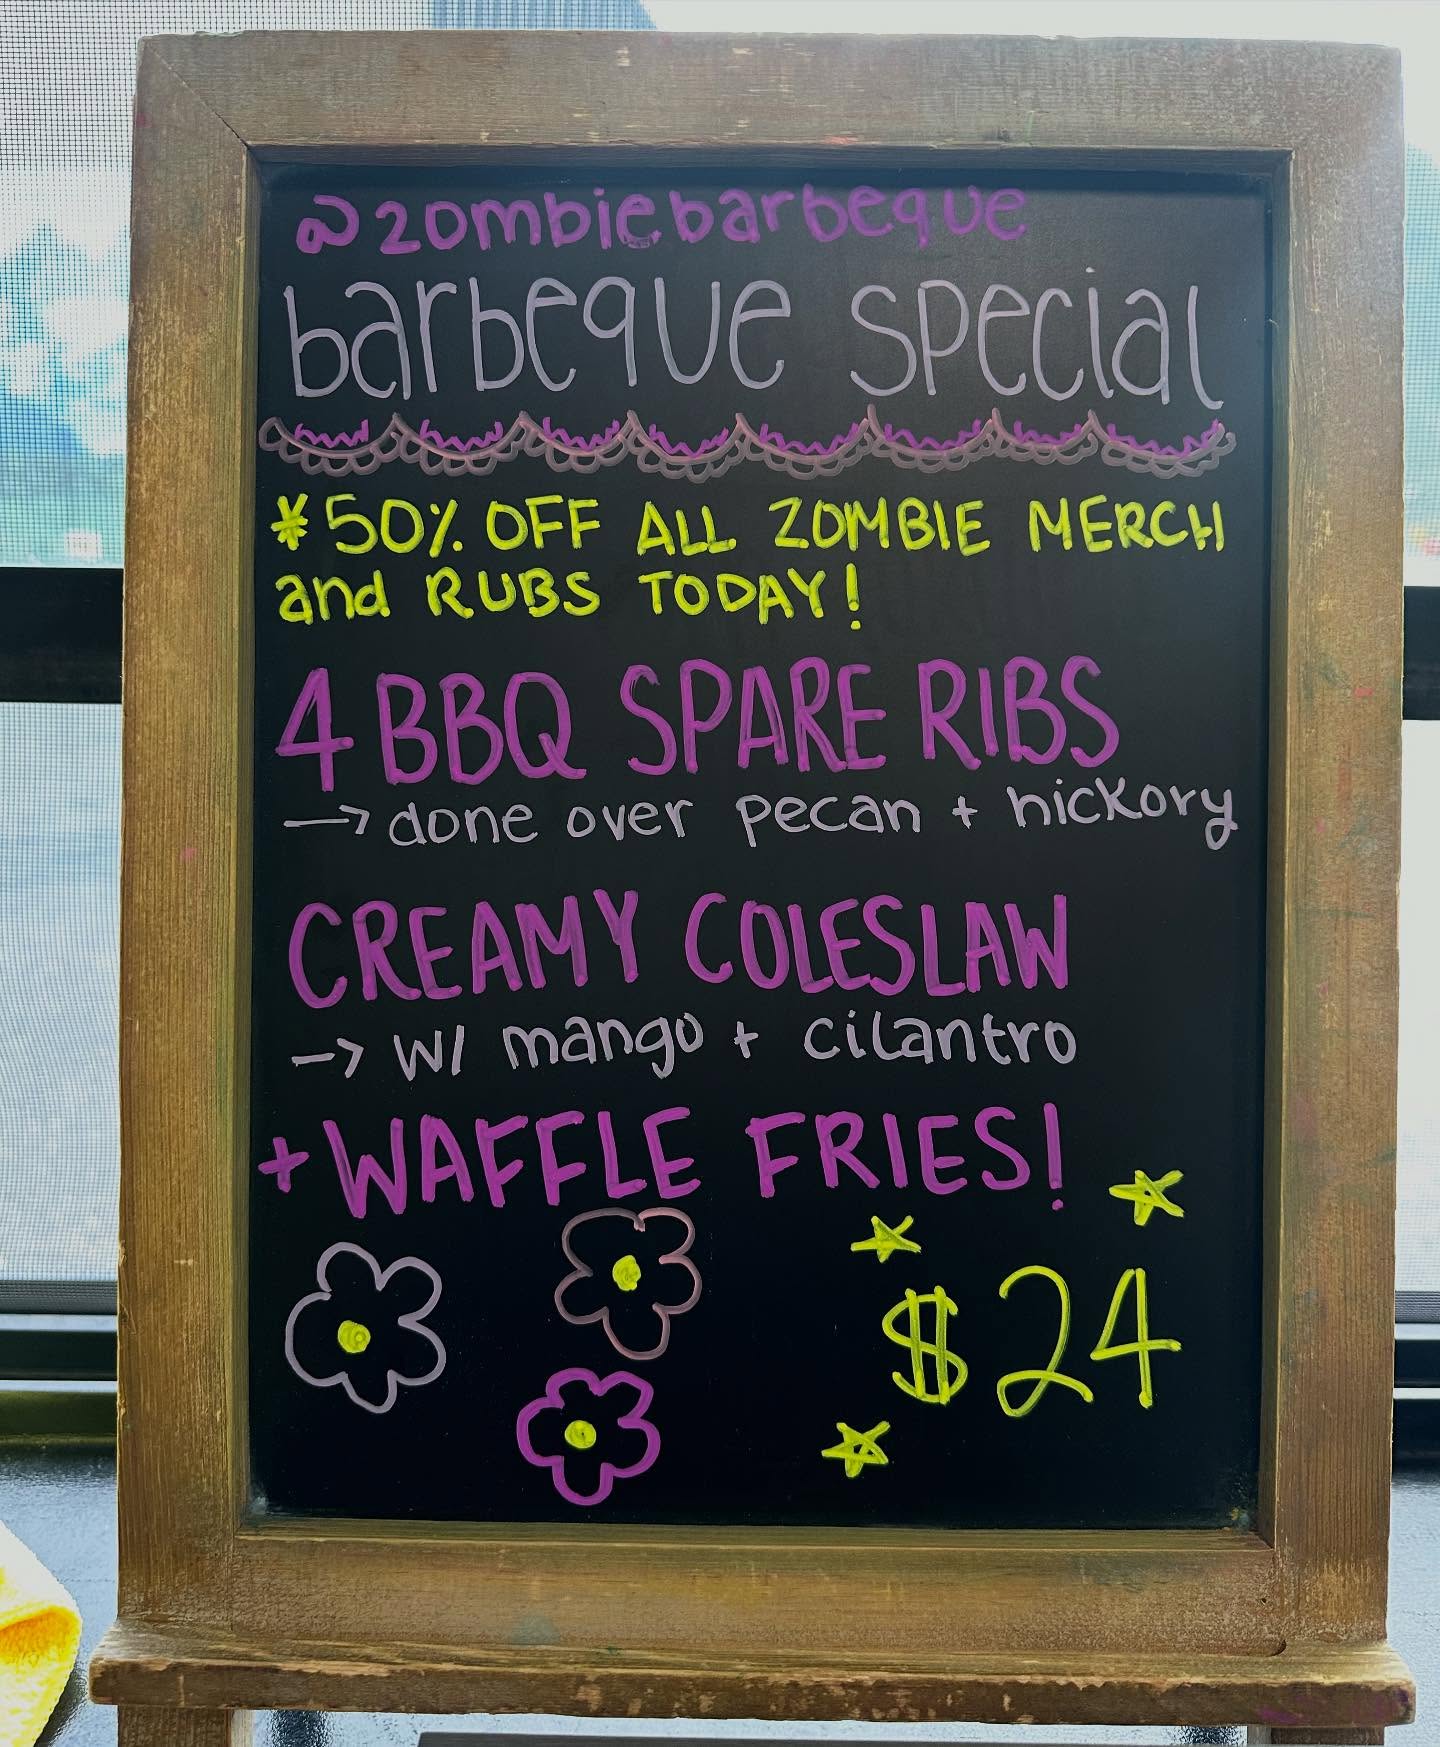 @zombiebarbeque
barbeque special
*50% OFF ALL ZOMBIE MERCH
and RUBS TODAY!
4 BBQ SPARE RIBS
→ done over pecan + hickory
CREAMY COLESLAW
→ w/ mango + cilantro
+ WAFFLE FRIES!
$24